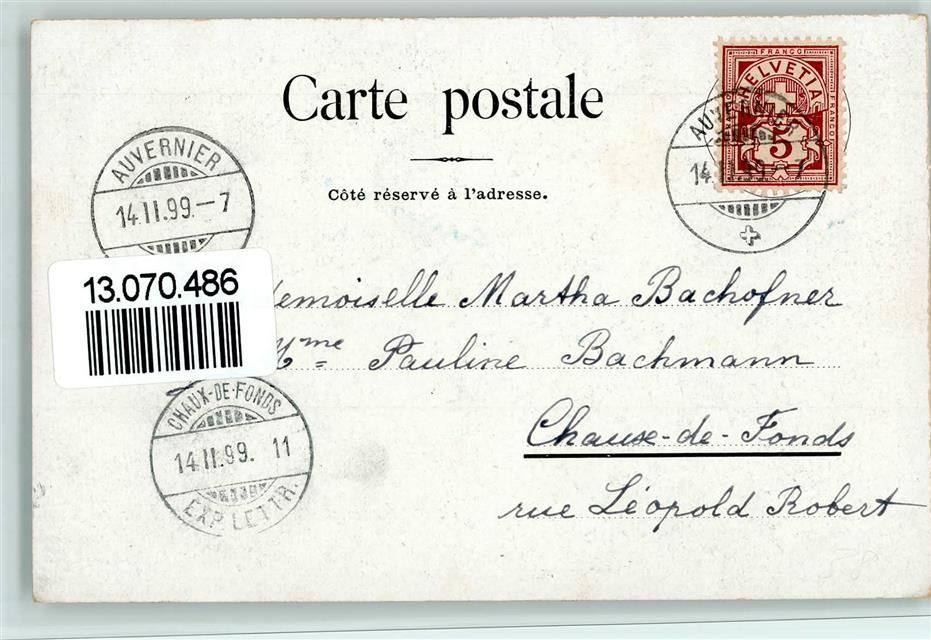 Carte postale
Côté réservé à l'adresse.
FRANCO
HELVETIA
FRANCO
5
AUVERNIER
14.II.99.-7
AUVERNIER
14.II.99.-7
13.070.486
demoiselle Martha Bachofner
Mme Pauline Bachmann
Chause-de-Fonds
rue Léopold Robert
CHAUX-DE-FONDS
14.II.99. 11
EXP. LETTR.